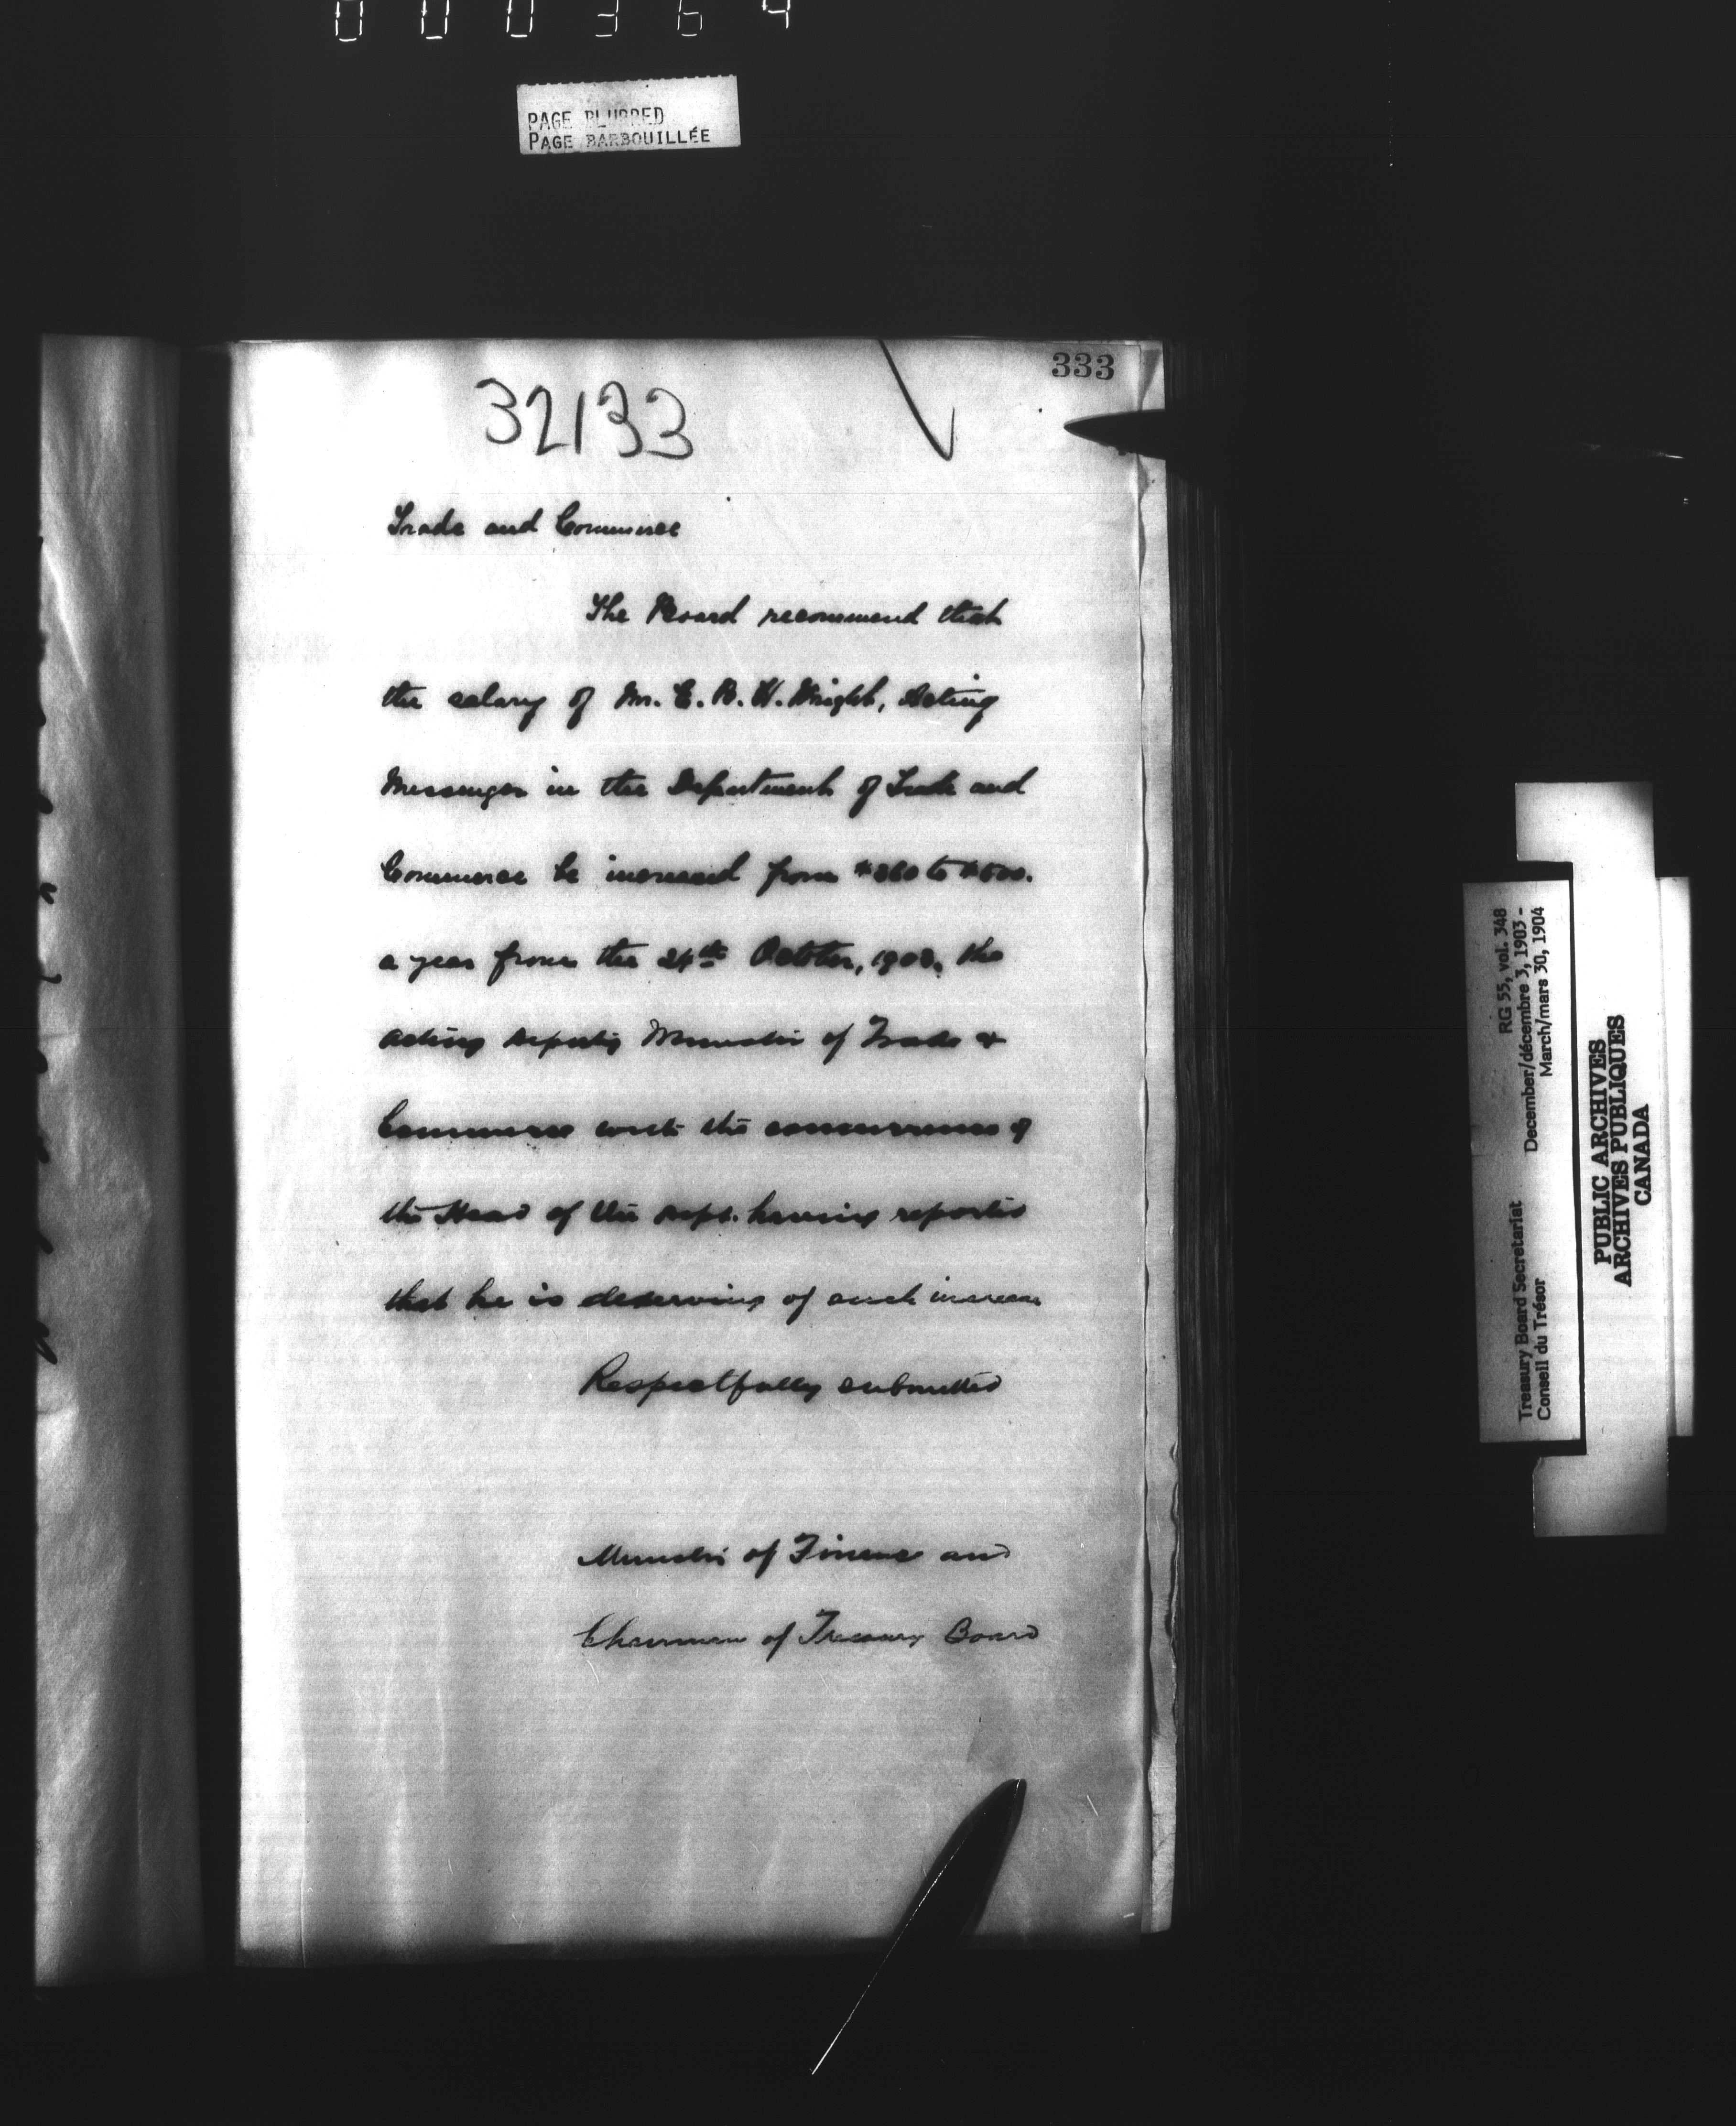 000364
PAGE BLURRED
PAGE BARBOUILLÉE
333
32133
Trade and Commerce
The Board recommend that
the salary of Mr. E. B. H. Wright, Acting
Messenger in the Department of Trade and
Commerce be increased from $360 to $500.
a year from the 24th October, 1903, the
acting Deputy Minister of Trade &
Commerce with the concurrence of
the Head of the Dept. having reported
that he is deserving of such increase
Respectfully submitted
Minister of Finance and
Chairman of Treasury Board
RG 55, vol. 348
Treasury Board Secretariat December/décembre 3, 1903 -
Conseil du Trésor March/mars 30, 1904
PUBLIC ARCHIVES
ARCHIVES PUBLIQUES
CANADA